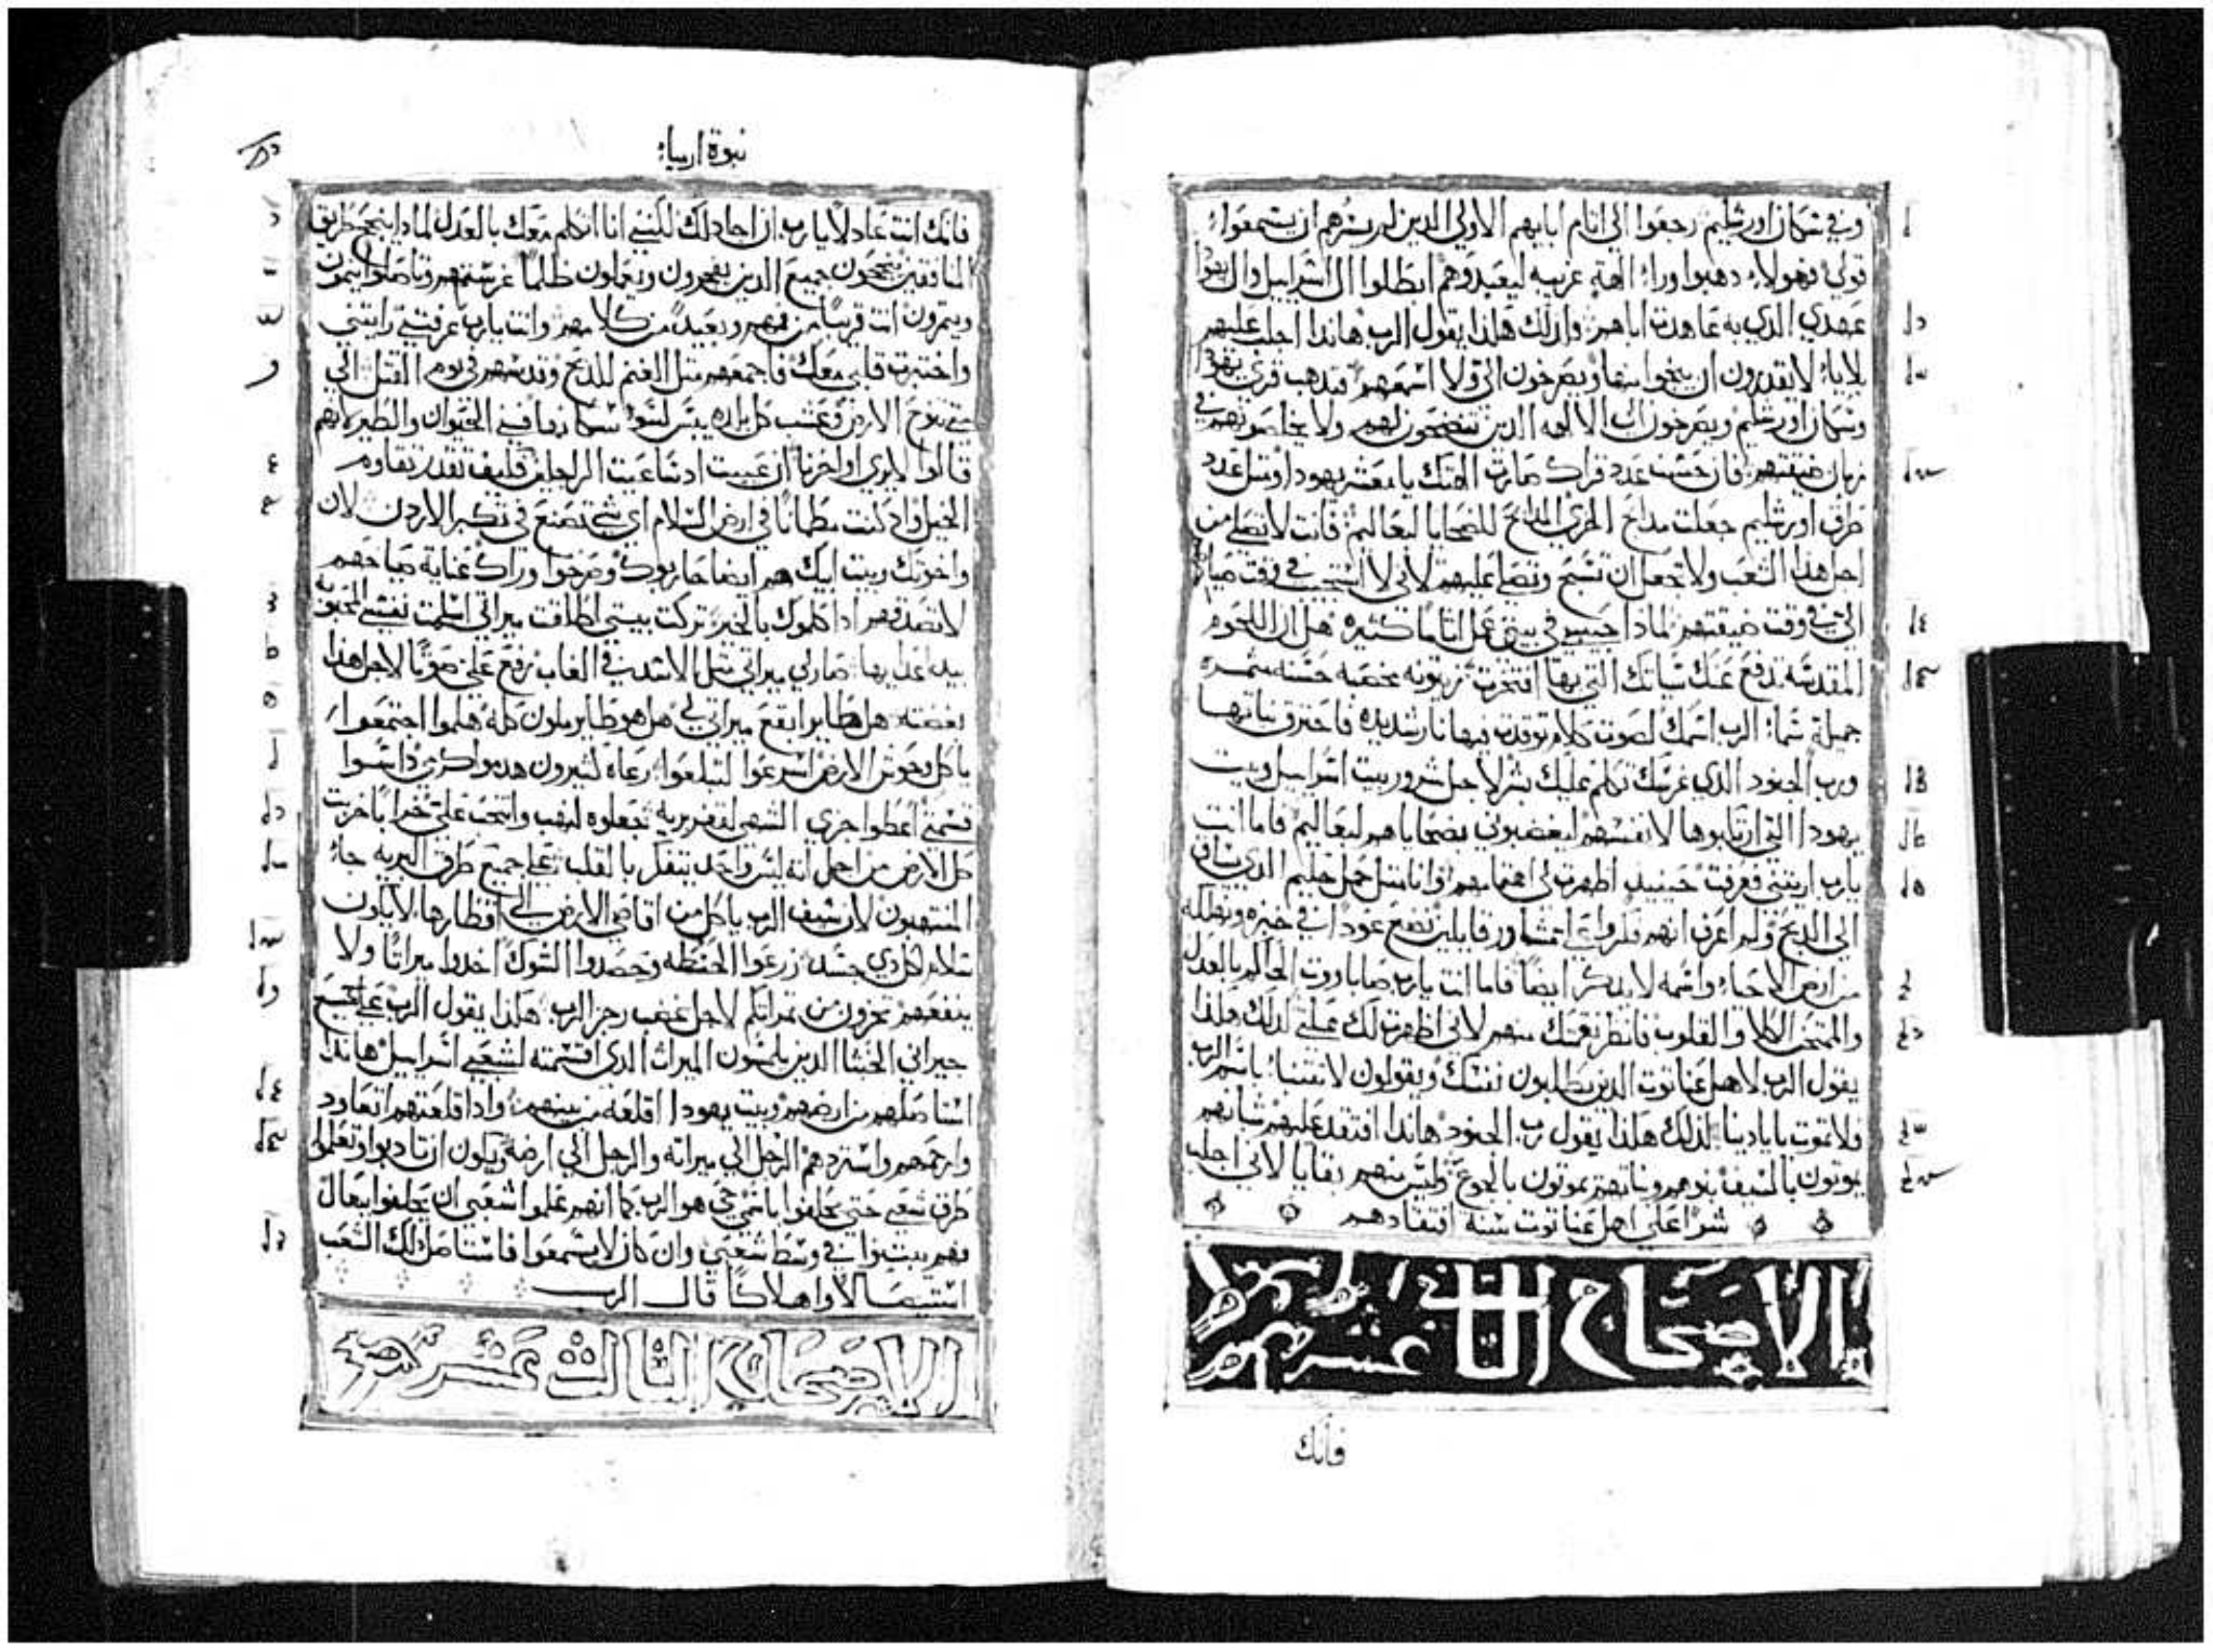 وفي سكان اورشليم رجعوا الي اثام ابايهم الاولي الدين لم يسرهم ان يستمعوا
قولي فهولاء دهبوا وراء الهة غريبه ليعبدوهم ابطلوا ال اسراييل وال يهودا
عهدي الدي به عاهدت اباهم ولدلك هكدا يقول الرب هاندا اجلب عليهم
بلايا لا يقدرون ان ينجوا منها ويصرخون الي ولا اسمعهم فتدهب قري يهودا
وسكان اورشليم ويصرخون الي الالهه الدين تنضحون لهم ولا يخلصونهم في
زمان ضيقتهم فان حسب عدد قراك صارت الهتك يا معشر يهودا ومثل عدد
طرق اورشليم جعلت مدابح الخزي المدابح للضحايا لبعاليم فانت لا تصلي من
اجل هدا الشعب ولا تجعل ان تسبح وتصلي عليهم لاني لا استجيب في وقت صياحهم
الي في وقت ضيقتهم لمادا حبيبي في بيتي عمل اثاما كثيره هل ان اللحوم
المقدسه تدفع عنك سياتك التي بها افتخرت زيتونه مخصبه حسنه مثمره
جميلة سماء الرب اسمك لصوت كلام توقدت فيها نار شديده فاحترق نباتها
ورب الجنود الدي غرسك تكلم عليك بشر لاجل شرور بيت اسراييل وبيت
يهودا التي ارتكبوها لانفسهم ليغضبوني بضحاياهم لبعاليم فاما انت
يارب اريتني فعرفت حينيد اظهرت لي اهتمامهم وانا مثل حمل حليم الدي يساق
الي الدبح ولم اعرف انهم فكروا علي تشاور قايلين نضع عودا في خبزه ونهلكه
من ارض الاحياء واسمه لا يدكر ايضا فاما انت يارب صاباووت الحاكم بالعدل
والممتحن الكلا والقلوب فانظر نقمتك منهم لاني اظهرت لك عملتي لدلك هكدا
يقول الرب لاهل عناتوت الدين يطلبون نفسك ويقولون لا تتنبا باسم الرب
فلا تموت بايادينا لدلك هكدا يقول رب الجنود هاندا افتقد عليهم شبانهم
يموتون بالسيف بنوهم وبناتهم يموتون بالجوع وليس منهم بقايا لاني اجلب
شرا علي اهل عناتوت سنه افتقادهم
الاصحاح الثاني
عشر
فانك
نبوة ارمياء
فانك انت عادلا يارب ان اجادلك لكنني انا اتكلم معك بالعدل لمادا ينجح طريق
المنافقين ينجحون جميع الدين يفجرون ويعملون ظلما غرستهم وتاصلوا ينمون
ويثمرون انت قريبا من فمهم وبعيد من كلاهم وانت يارب عرفتني رايتني
واختبرت قلبي معك فاجمعهم مثل الغنم للدبح وقدسهم في يوم القتل الي
متي تنوح الارض وعشب كل بلده ييبس لسوء سكانها فني الحيوان والطير لانهم
قالوا لا يري اواخرنا ان عييت اد ساعيت الرجلين فكيف تقدر تقاوم
الخيل واد كنت مطمانا في ارض السلام اي شي تصنع في تكبر الاردن لان
واخوتك وبيت ابيك هم ايضا حاربوك وصرخوا وراك غناية صياحهم
لا تصدقهم ادا كلموك بالخير تركت بيتي اطلقت ميراتي اسلمت نفسي المحبوبه
بيد اعدايها صار لي ميراتي مثل الاسد في الغاب رفع علي صوتا لاجل هدا
بغضته هل طايرا ابقع ميراتي لي هل هو طاير ملون كله هلموا اجتمعوا
يا كل وحوش الارض اسرعوا لتبلعوا رعاه كثيرون هدموا كرمي داسوا
قسمتي اعطوا جزي الشهي لقفر بريه جعلوه لنهب وانتحب علي خرابا خربت
كل الارض من اجل انه ليس واحد يتفكر بالقلب علي جميع طرق البريه جاء
المنتهبون لان سيف الرب ياكل من اقاضي الارض الي اقطارها لا يكون
سلام لكل دي جسد زرعوا الحنطه وحصدوا الشوك اخدوا ميراتا ولا
ينفعهم تخزون من تمراتكم لاجل غضب رجز الرب هكدا يقول الرب علي جميع
جيراني الخبثا الدين يلمسون الميراث الدي اقتسمته لشعبي اسراييل هاندا
استاصلهم من ارضهم وبيت يهودا اقلعه من بينهم وادا قلعتهم اتعاود
وارحمهم واستردهم الرجل الي ميراته والرجل الي ارضه ويكون ان تادبوا وتعلموا
طرق شعبي حتي يحلفوا باسمي حي هو الرب كما انهم علموا شعبي ان يحلفوا ببعال
فهم يبتنوا في وسط شعبي وان كان لا يسمعوا فاستاصل دلك الشعب
استيصالا واهلاكا قال الرب
الاصحاح الثالث عشر